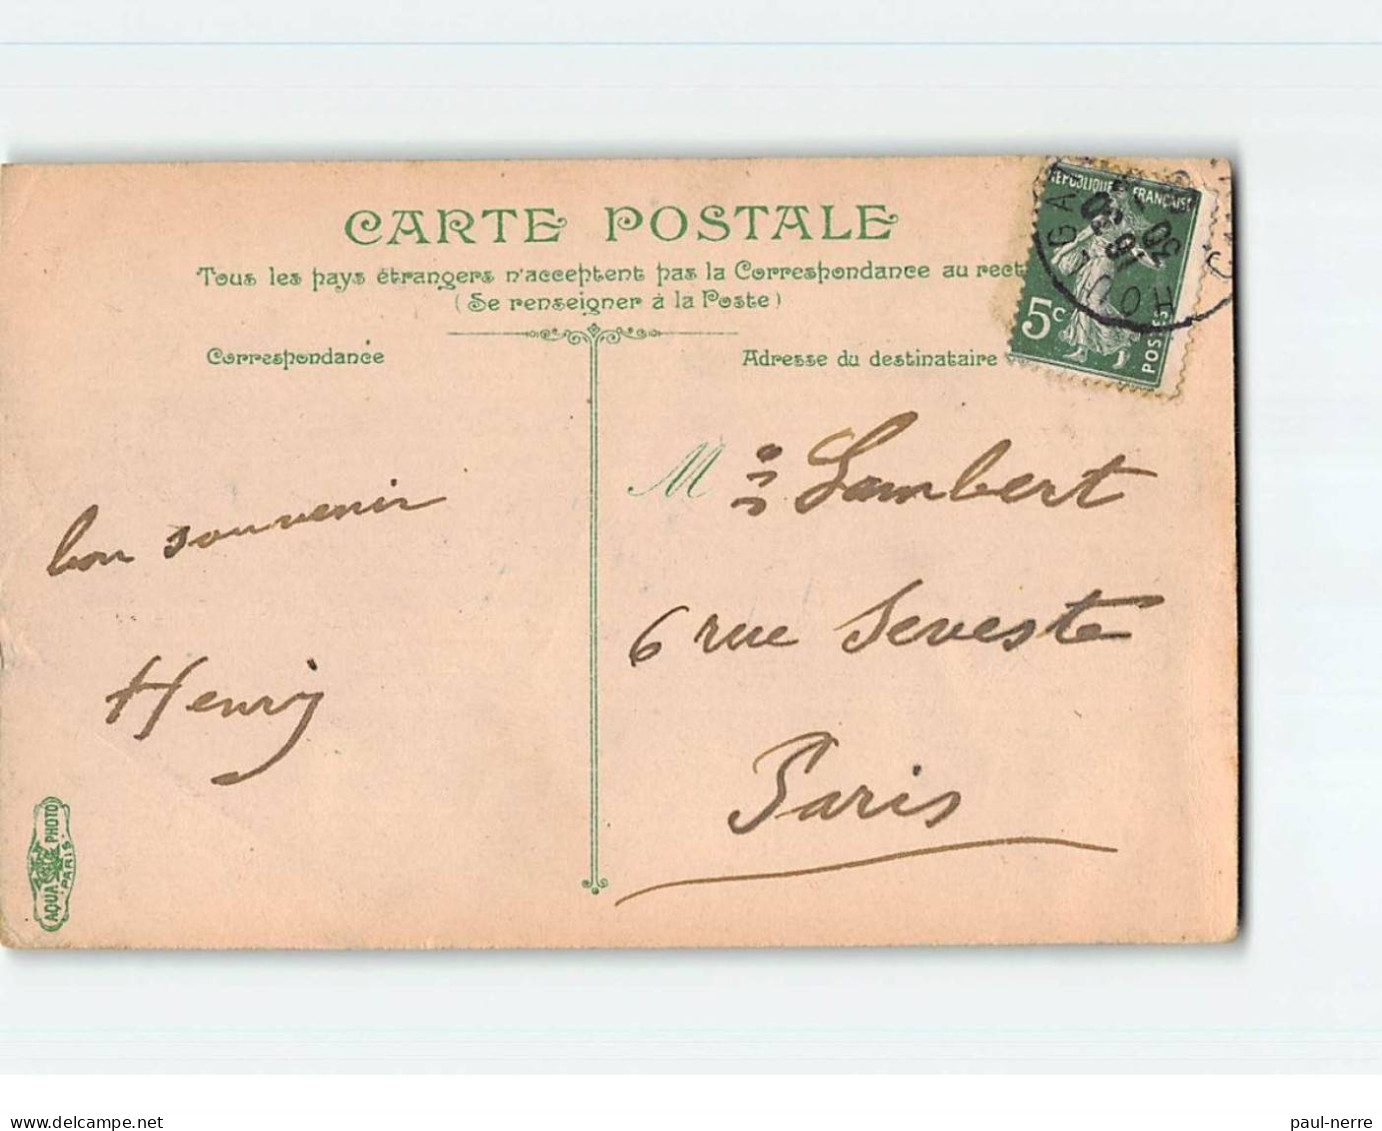 CARTE POSTALE
Tous les pays étrangers n'acceptent pas la Correspondance au rect
(Se renseigner à la Poste)
Correspondance
Adresse du destinataire
RÉPUBLIQUE FRANÇAISE
5c
POSTES
16 30
30
HOULGATE
bon souvenir
Henry
M Lambert
6 rue Seveste
Paris
AQUA PHOTO
PARIS
delcampe.net
paul-nerre